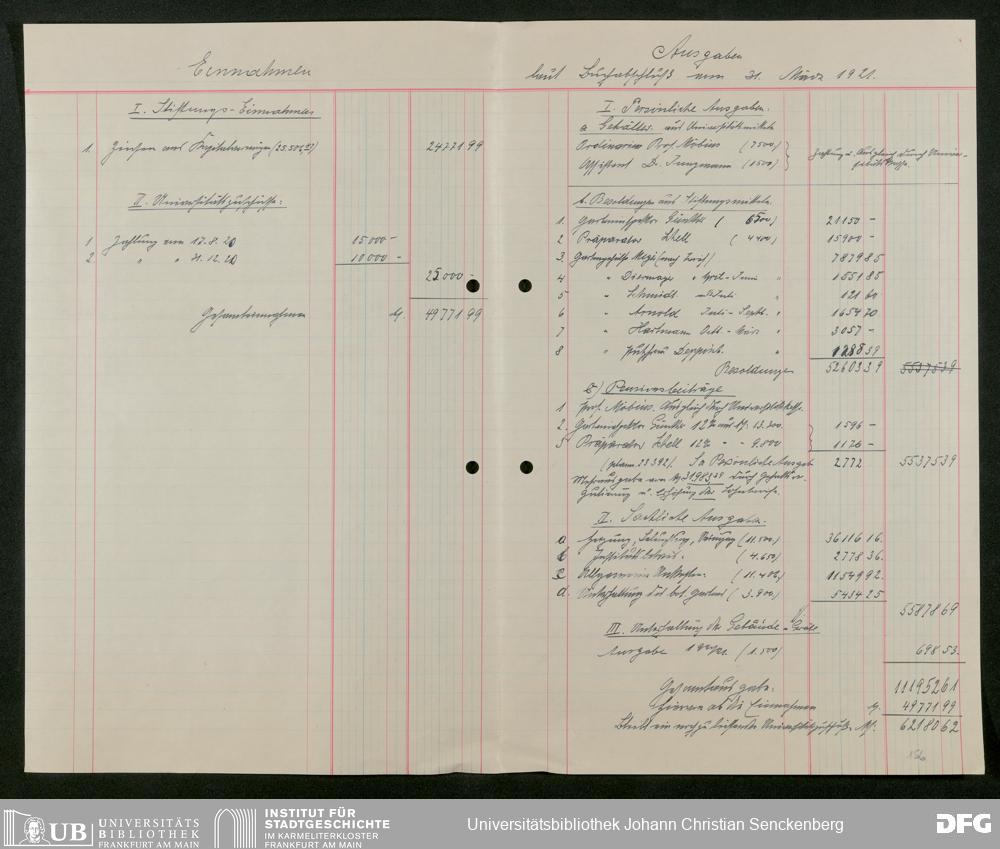 Einnahmen
I. Stiftungs-Einnahmen
1. Zinsen aus Kapitalvermögen (25.506,27) 24771 99
II. Universitätszuschüsse:
1 Zahlung vom 17.8.20 15000 -
2. " " 21.12.20 10000 -
25.000 -
Gesamteinnahmen M. 49771 99
Ausgaben
laut Buchabschluß vom 31. März 1921.
I. Persönliche Ausgaben.
a Gehälter aus Universitätsmitteln
Ordinarius Prof. Möbius (7500)
Assistent Dr. Jungmann (1500)
Zahlung u. Ausgleich durch Univer-
sitätskasse.
b. Besoldungen aus Stiftungsmitteln
1. Garteninspektor Günther (6500) 21150 -
2 Präparator Thell (4400) 15900 -
3. Gartengehülfe 7879 85
4 " " April-Juni " 1551 85
5 " Schmidt Juli " 121 60
6 " Arnold Juli-Sept. " 1654 70
7 " Hartmann Okt.-März " 3057 -
8 " Putzfrau " 1288 39
Besoldungen 52603 39 55375 39
c) Pensionsbeiträge
1 Prof. Möbius. Ausgleich durch Universitätskasse.
2. Garteninspektor Günther 12% aus M. 13.300. 1596 -
3 Präparator Thell 12% " " 9.800 1176 -
(23392). Sa Persönliche Ausgab 2772 55375 39
Mehrausgabe von durch Gehalts-
u. Erhöhung der
II. Sachliche Ausgaben.
a Heizung, Beleuchtung, Reinigung (11.500) 36116 16.
b Institutsbetrieb. (4.650) 2778 36.
c Allgemeine Unkosten. (11.402) 11549 92.
d. Unterhaltung des bot. Gartens (3.900) 5434 25
55878 69
III. Unterhaltung der Gebäude
Ausgabe (1.500) 698 53.
Gesamtausgabe. 111952 61
Hiervon ab die Einnahmen M. 49771 99
Bleibt ein noch zu leistender Universitätszuschuß M. 62180 62
UB
UNIVERSITÄTS
BIBLIOTHEK
FRANKFURT AM MAIN
INSTITUT FÜR
STADTGESCHICHTE
IM KARMELITERKLOSTER
FRANKFURT AM MAIN
Universitätsbibliothek Johann Christian Senckenberg
DFG